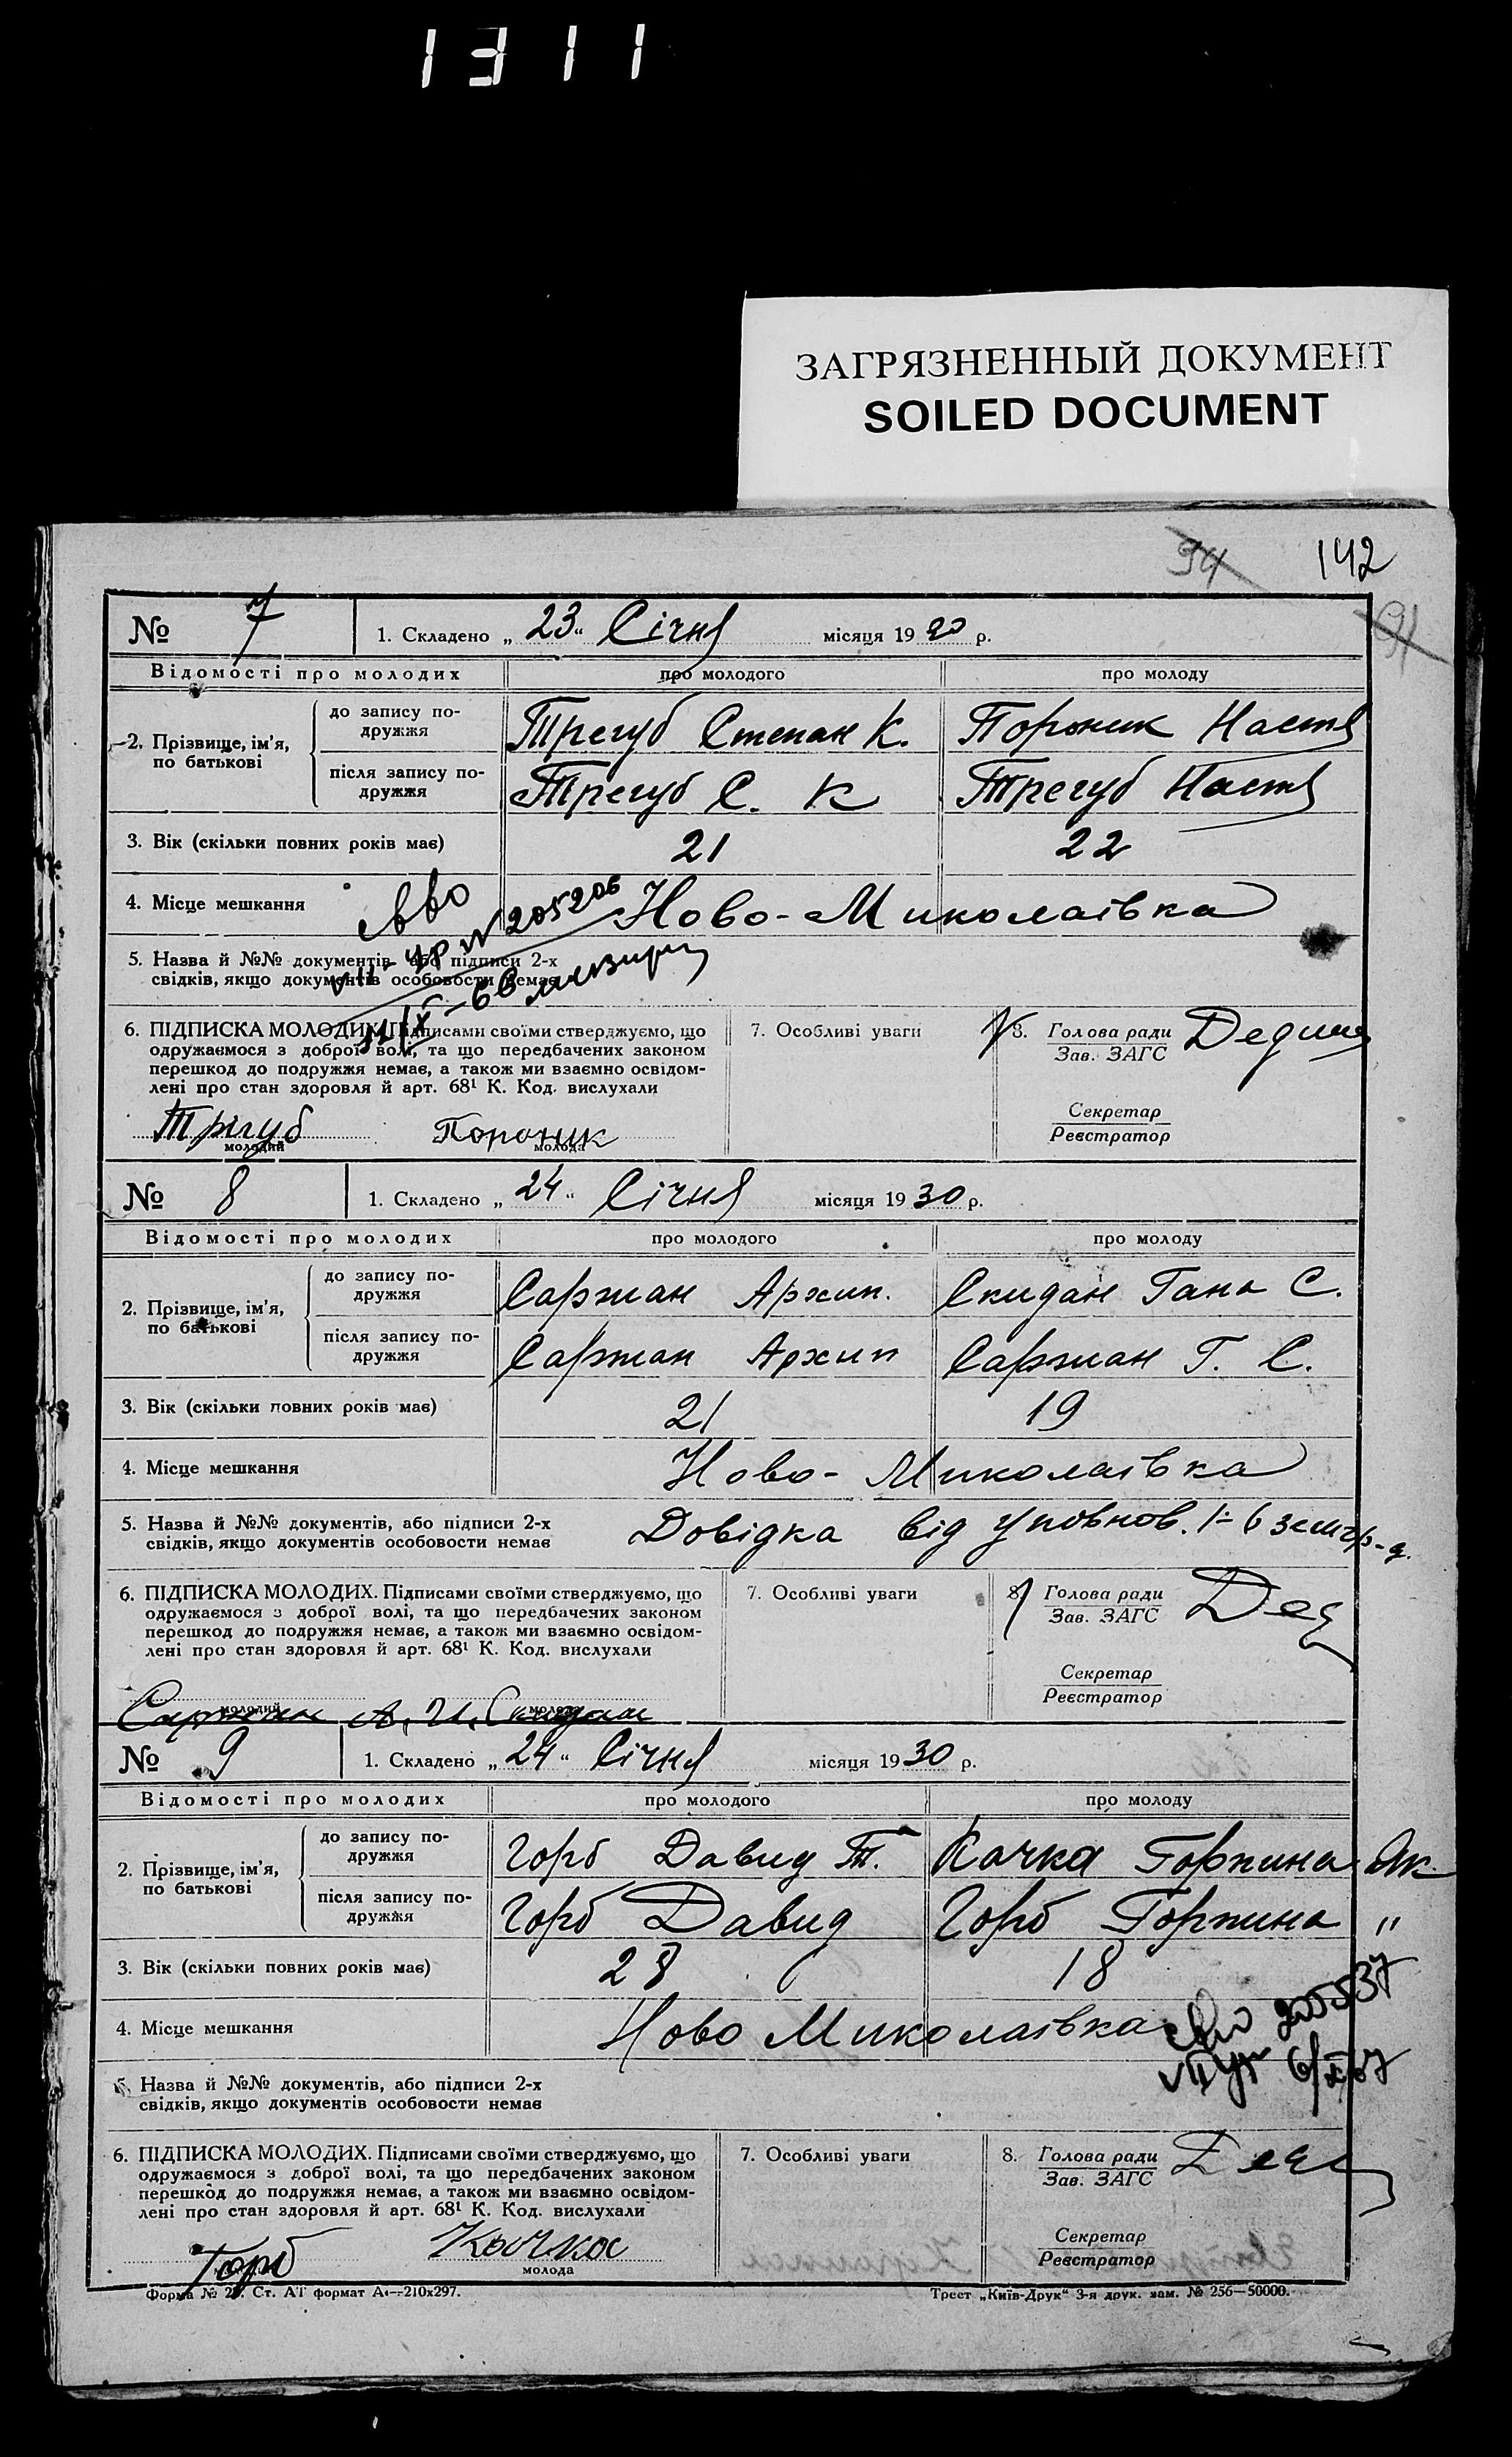 1311
ЗАГРЯЗНЕННЫЙ ДОКУМЕНТ
SOILED DOCUMENT
94 142
91
№ 7 1. Складено „ 23 “ Січня місяця 19 20 р.
Відомості про молодих про молодого про молоду
2. Прізвище, ім’я, по батькові
до запису подружжя Трегуб Степан К. Настя
після запису подружжя Трегуб С. К Трегуб Настя
3. Вік (скільки повних років має) 21 22
4. Місце мешкання Ново-Миколаівка
205206
5. Назва й №№ документів, або підписи 2-х
свідків, якщо документів особовости немає
6. ПІДПИСКА МОЛОДИХ. Підписами своїми стверджуємо, що
одружаємося з доброї волі, та що передбачених законом
перешкод до подружжя немає, а також ми взаємно освідом-
лені про стан здоровля й арт. 68¹ К. Код. вислухали
7. Особливі уваги
8. Голова ради
Зав. ЗАГС
Секретар
Реєстратор
Трігуб
молодий молода
№ 8 1. Складено „ 24 “ Січня місяця 19 30 р.
Відомості про молодих про молодого про молоду
2. Прізвище, ім’я, по батькові
до запису подружжя Саржан Архип. Скидан Гана С.
після запису подружжя Саржан Архип Саржан Г. С.
3. Вік (скільки повних років має) 21 19
4. Місце мешкання Ново-Миколаівка
5. Назва й №№ документів, або підписи 2-х
свідків, якщо документів особовости немає
Довідка від уповнов.
6. ПІДПИСКА МОЛОДИХ. Підписами своїми стверджуємо, що
одружаємося з доброї волі, та що передбачених законом
перешкод до подружжя немає, а також ми взаємно освідом-
лені про стан здоровля й арт. 68¹ К. Код. вислухали
7. Особливі уваги
8. Голова ради
Зав. ЗАГС
Секретар
Реєстратор
молодий молода
Саржан А. И. Скидан
№ 9 1. Складено „ 24 “ Січня місяця 19 30 р.
Відомості про молодих про молодого про молоду
2. Прізвище, ім’я, по батькові
до запису подружжя Горб Давид Т. Качка Горпина Як.
після запису подружжя Горб Давид Горб Горпина "
3. Вік (скільки повних років має) 28 18
4. Місце мешкання Ново Миколаівка
5. Назва й №№ документів, або підписи 2-х
свідків, якщо документів особовости немає
6. ПІДПИСКА МОЛОДИХ. Підписами своїми стверджуємо, що
одружаємося з доброї волі, та що передбачених законом
перешкод до подружжя немає, а також ми взаємно освідом-
лені про стан здоровля й арт. 68¹ К. Код. вислухали
7. Особливі уваги
8. Голова ради
Зав. ЗАГС
Секретар
Реєстратор
Горб Качка
молода
Форма № 29. Ст. АТ формат А₄—210х297. Трест „Київ-Друк“ 3-я друк. зам. № 256—50000.